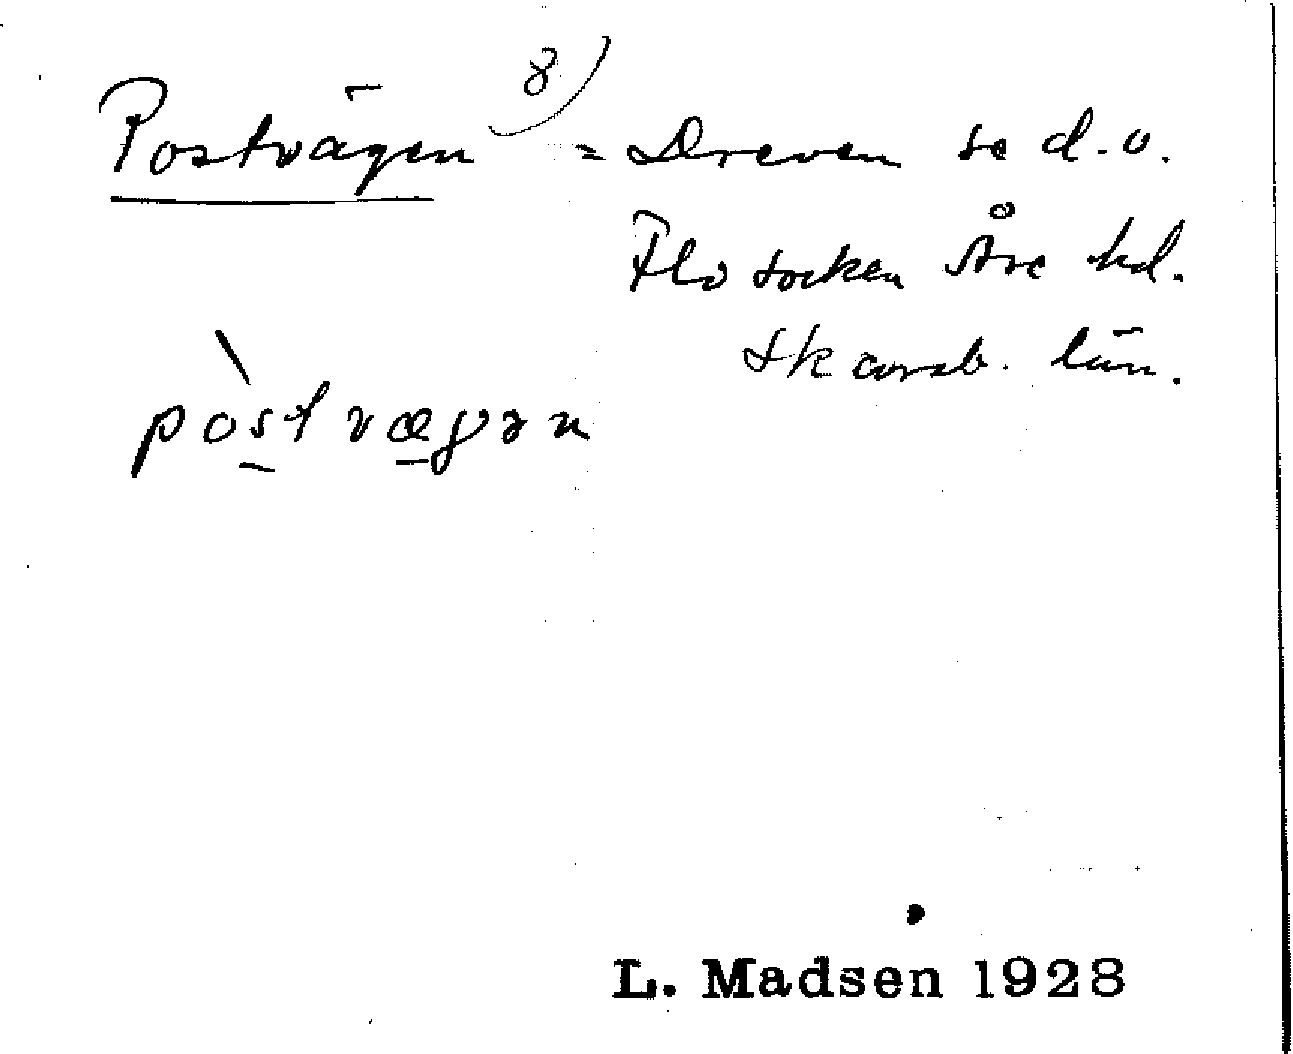 Postvägen 8) = Dreven se d.o.
Flo socken Åse hd.
Skarab. län.
pòstvægən
L. Madsen 1928